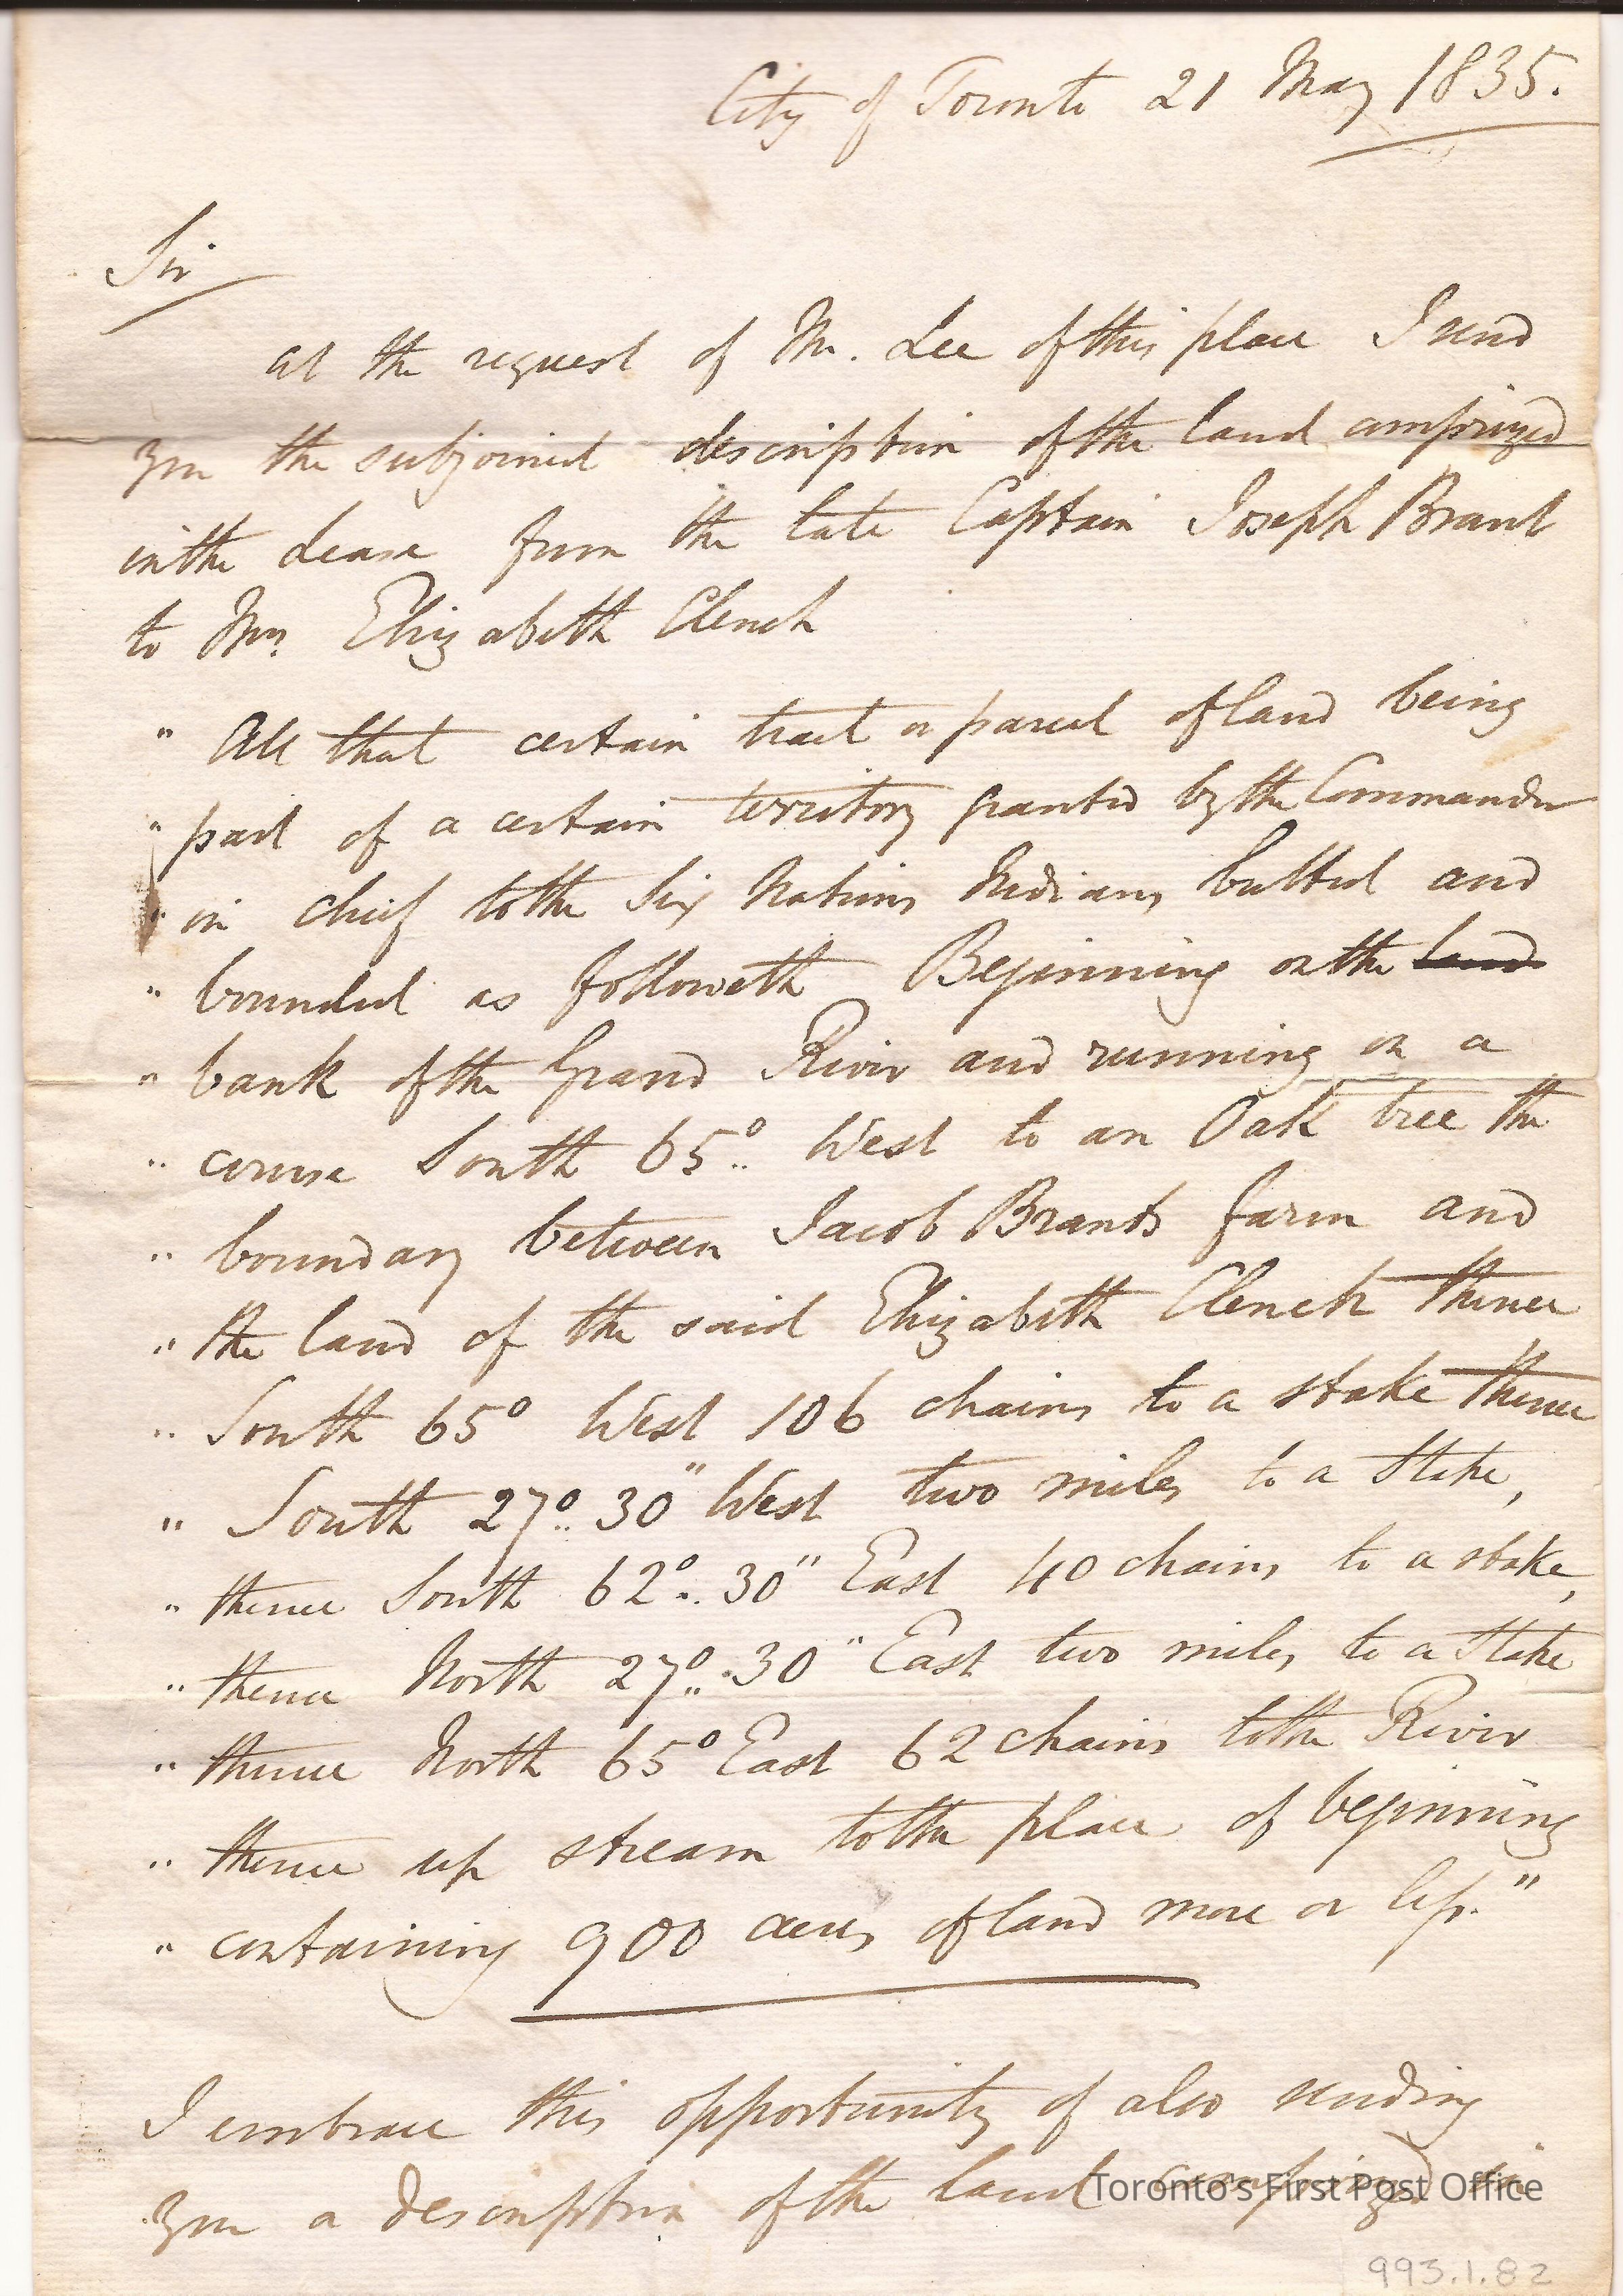 City of Toronto 21 May 1835.
Sir
at the request of Mr. Lee of this place I send
you the subjoined description of the land comprized
in the Lease from the late Captain Joseph Brant
to Mrs Elizabeth Clench
" All that certain tract or parcel of land being
" part of a certain territory granted by the Commander
" in chief to the Six Nations Indians butted and
" bounded as followeth Beginning on the land
" bank of the Grand River and running on a
" course South 65° West to an Oak tree the
" boundary between Jacob Brants farm and
" the land of the said Elizabeth Clench thence
" South 65° West 106 chains to a stake thence
" South 27°. 30" West two miles to a Stake,
" thence South 62°. 30" East 40 chains to a stake,
" thence North 27°. 30" East two miles to a Stake
" thence North 65° East 62 chains to the River
" thence up stream to the place of beginning
" containing 900 acres of land more or less."
I embrace this opportunity of also sending
you a description of the land comprized in
Toronto's First Post Office
993.1.82